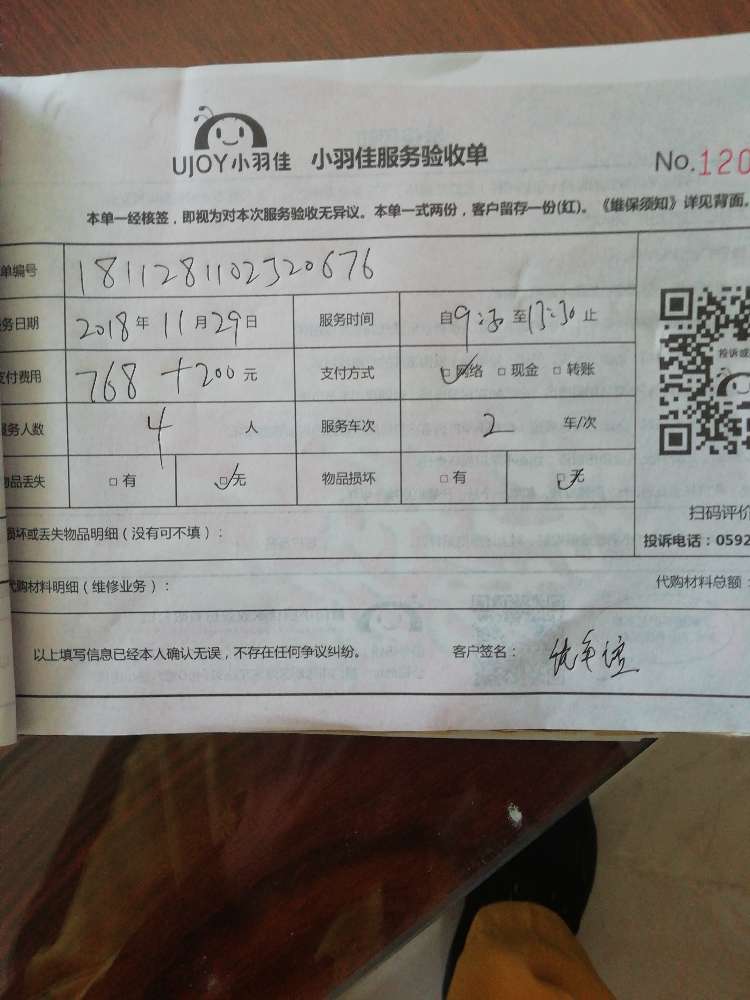 UJOY小羽佳 小羽佳服务验收单 No.120
本单一经核签，即视为对本次服务验收无异议。本单一式两份，客户留存一份(红)。《维保须知》详见背面。
单编号 1811281102320676
务日期 2018年11月29日 服务时间 自9:30至13:30止
支付费用 768+200元 支付方式 □网络 □现金 □转账
服务人数 4人 服务车次 2车/次
物品丢失 □有 □无 物品损坏 □有 □无
投诉或
损坏或丢失物品明细（没有可不填）： 扫码评价
投诉电话：0592
代购材料明细（维修业务）： 代购材料总额：
以上填写信息已经本人确认无误，不存在任何争议纠纷。 客户签名：